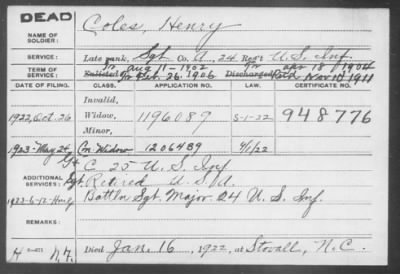 DEAD
NAME OF SOLDIER: Coles, Henry
SERVICE: Late rank, Sgt Co. A, 24 Reg't U.S. Inf.
TERM OF SERVICE: Enlisted Aug 11-1902 Discharged Apr 18, 1904
Feb. 26, 1906 Retd Nov 10, 1911
DATE OF FILING. CLASS. APPLICATION NO. LAW. CERTIFICATE NO.
Invalid,
1922, Oct. 26 Widow, 1196089 5-1-22 948776
Minor,
1923-May 24, Con. Widow 1206489 5/1/22
ADDITIONAL SERVICES: C 25 U.S. Inf
Sgt. Retired U.S.A.
Battln Sgt. Major 24 U.S. Inf.
REMARKS:
Died Jan. 16, 1922, at Stovall, N.C.